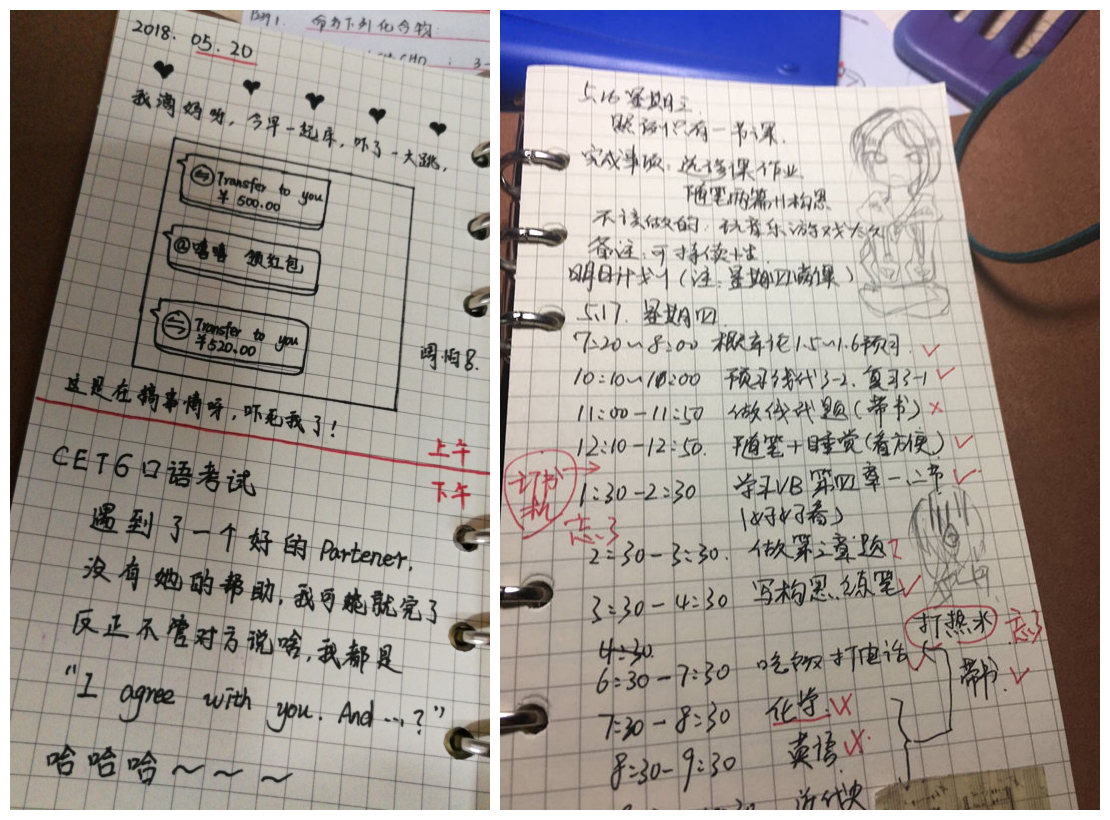 命名下列化合物:
2018. 05. 20
我滴妈呀,今早一起床,吓了一大跳,
Transfer to you
¥ 500.00
@嘻嘻 领红包
Transfer to you
¥520.00
闺怕
这是在搞事情呀,吓死我了!
上午
下午
CET6口语考试
遇到了一个好的Partener,
没有她的帮助,我可能就完了
反正不管对方说啥,我都是
"I agree with you. And...?"
哈哈哈~~~
5.16 星期三
只有一节课.
完成事项:选修课作业
随笔两篇+构思
不该做的:玩音乐游戏太久
备注:可持续
明日计划(注:星期四满课)
5.17. 星期四
7:20~8:00 概率论1.5~1.6预习 ✓
10:10~10:00 预习线代3-2.复习3-1 ✓
11:00-11:50 做线代题(带书) ×
12:10-12:50. 随笔+睡觉(看方便) ✓
1:30-2:30 学习VB第四章一二节 ✓
(好好看)
忘了
2:30-3:30. 做第三章题?
3:30-4:30 写构思,练笔 ✓
打热水 忘了
4:30.
6:30-7:30 吃饭打电话 ✓
带书. ✓
7:30-8:30 化学.
8:30-9:30 英语
近代史